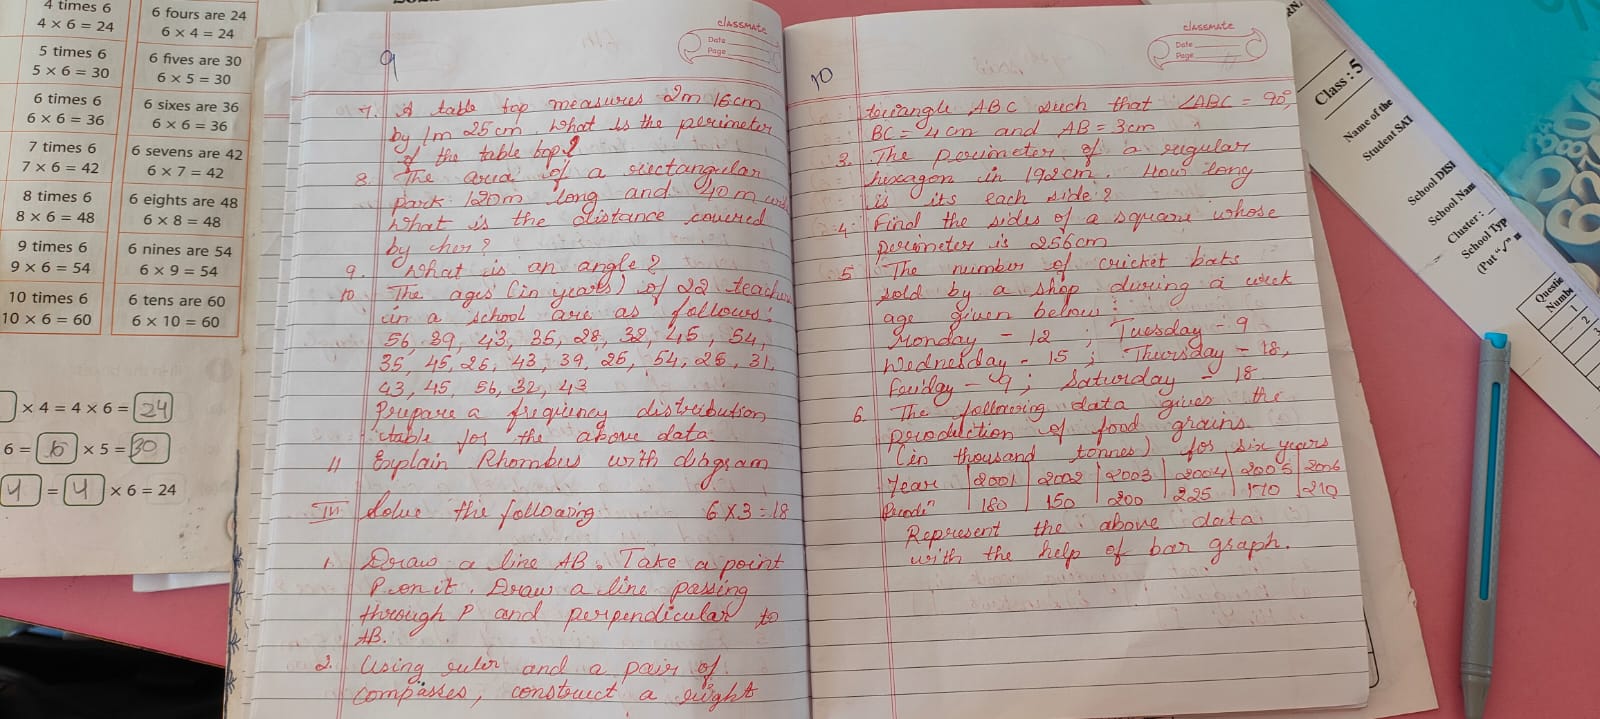 4 times 6
4 × 6 = 24
5 times 6
5 × 6 = 30
6 times 6
6 × 6 = 36
7 times 6
7 × 6 = 42
8 times 6
8 × 6 = 48
9 times 6
9 × 6 = 54
10 times 6
10 × 6 = 60
6 fours are 24
6 × 4 = 24
6 fives are 30
6 × 5 = 30
6 sixes are 36
6 × 6 = 36
6 sevens are 42
6 × 7 = 42
6 eights are 48
6 × 8 = 48
6 nines are 54
6 × 9 = 54
6 tens are 60
6 × 10 = 60
× 4 = 4 × 6 = 24
6 = × 5 = 30
4 = 4 × 6 = 24
9
classmate
Date
Page
7. A table top measures 2m 16cm
by 1m 25cm. What is the perimeter
of the table top?
8. The area of a rectangular
park 120m long and 40m
What is the distance covered
by her?
9. What is an angle?
10. The ages (in years) of 22
in a school are as follows:
56, 39, 43, 35, 28, 32, 45, 54,
35, 45, 25, 43, 39, 25, 54, 25, 31,
43, 45, 56, 32, 43
Prepare a frequency distribution
table for the above data.
11 Explain Rhombus with diagram
III Solve the following 6 X 3 = 18
1. Draw a line AB. Take a point
P on it. Draw a line passing
through P and perpendicular to
AB.
2. Using ruler and a pair of
compasses, construct a right
10
classmate
Date
Page
triangle ABC such that ∠ABC = 90°,
BC = 4 cm and AB = 3cm
3. The perimeter of a regular
hexagon in cm. How long
is its each side?
4. Find the sides of a square whose
perimeter is 256cm
5 The number of cricket bats
sold by a shop during a week
age given below:
Monday - 12 ; Tuesday - 9
Wednesday - 15 ; Thursday - 18,
Friday - 9 ; Saturday - 18
6. The following data gives the
production of food grains
(in thousand tonnes) for six years
Year | 2001 | 2002 | 2003 | 2004 | 2005 | 2006
180 | 150 | 200 | 225 | 170 | 210
Represent the above data
with the help of bar graph.
Class : 5
Name of the
Student SAT
School DISE
School Nam
Cluster :
School Typ
(Put "✓"
Questio
Numbe
1
2
3